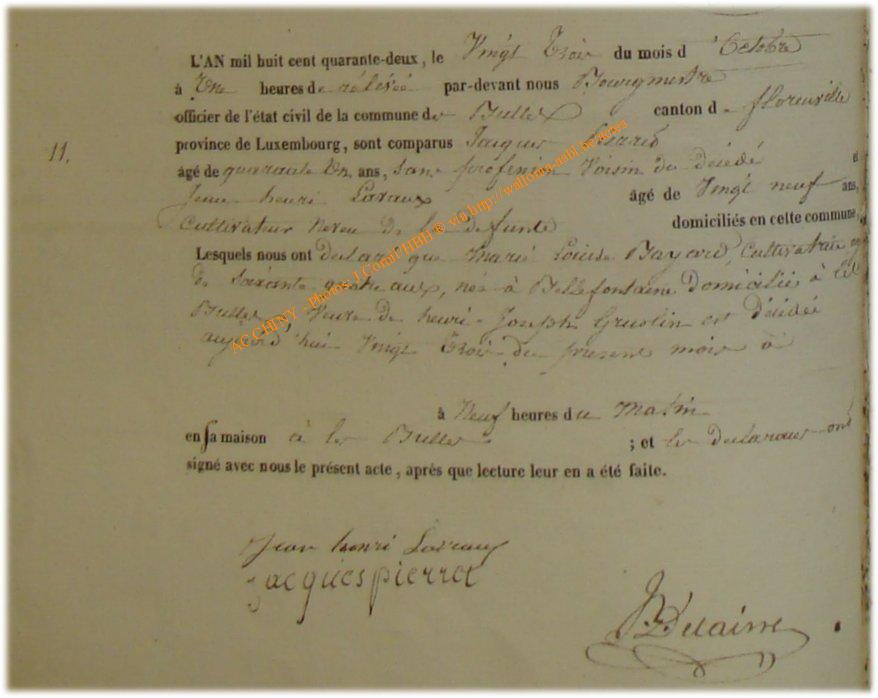 L'AN mil huit cent quarante-deux, le Vingt Trois du mois d'Octobre
à Une heures de rélévé par-devant nous Bourgmestre
officier de l'état civil de la commune de Bulles canton d florenville
11.
province de Luxembourg, sont comparus Jacques
âgé de quarante Un ans, Sans profession Voisin du décédé et
Jean henri Laraux âgé de Vingt neuf ans,
Cultivateur Neveu de la defunte domiciliés en cette commune
Lesquels nous ont declaré que Marie Louise Bayard, Cultivatrice
de Soixante quatre aux, née à Bellefontaine Domicilié à
Bulles Veuve de henri-Joseph est décédée
aujourd'hui Vingt Trois du present mois à
à Neuf heures du Matin
en sa maison à les Bulles ; et les declaraus ont
signé avec nous le présent acte, après que lecture leur en a été faite.
Jean henri Laraux
jacques pierret
Delaisse
ACCHINY - Photos J.Comi HBH ® via http://wallonia-asbl.be/news